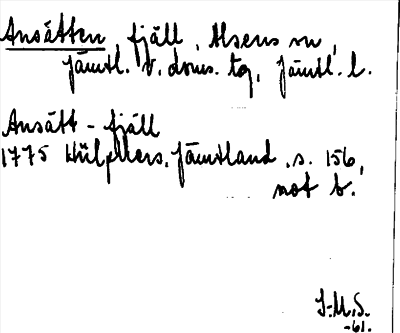 Ansätten fjäll, Alsens sn,
Jämtl. v. doms. tg, Jämtl. l.
Ansätt-fjäll
1775 Hülphers, Jämtland, s. 156,
not b.
I.M.S.
-61.